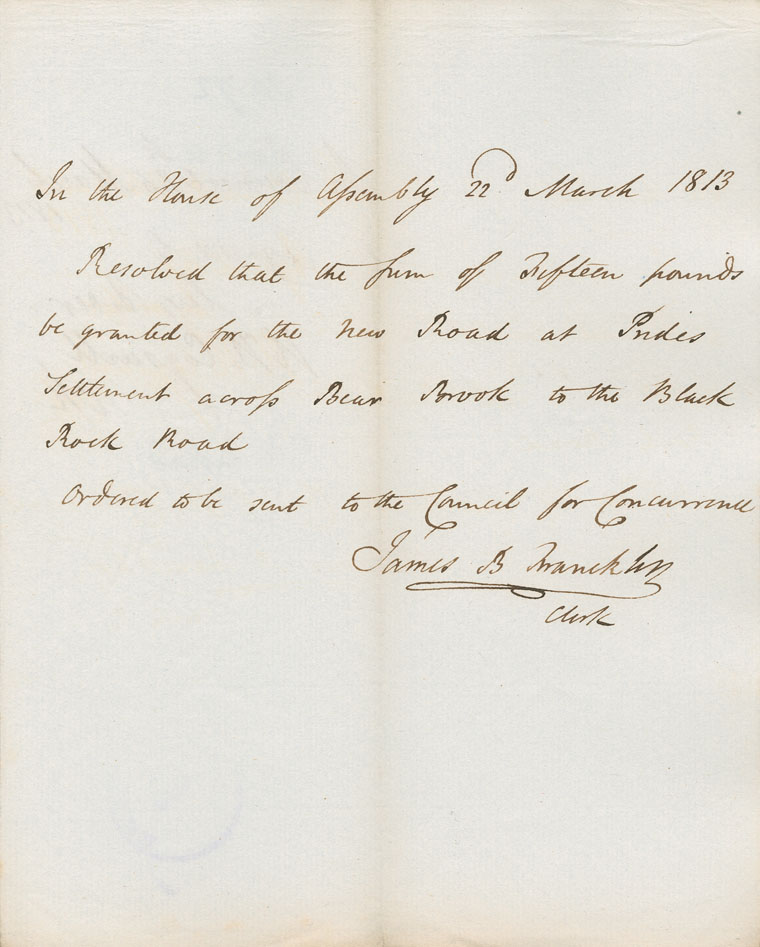 In the House of Assembly 22d March 1813
Resolved that the sum of Fifteen pounds
be granted for the new Road at Prides
Settlement across Bear Brook to the Black
Rock Road
Ordered to be sent to the Council for Concurrence
James B Francklin
Clerk